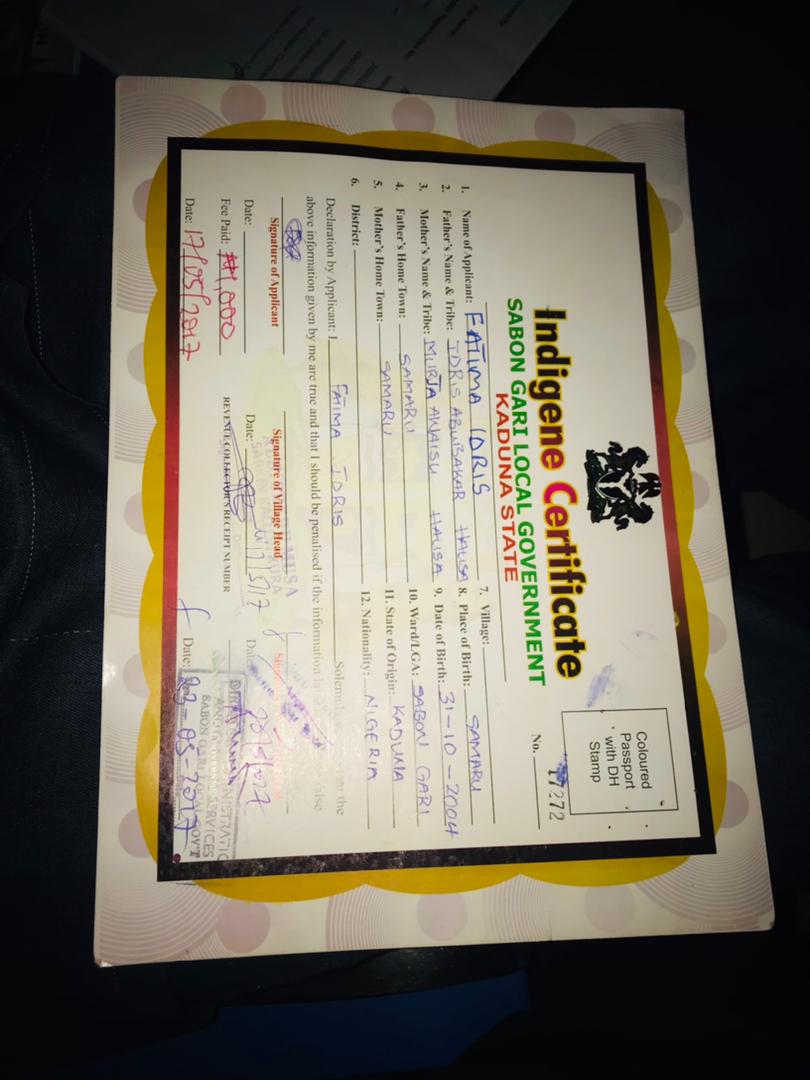 Indigene Certificate
SABON GARI LOCAL GOVERNMENT
KADUNA STATE
Coloured
Passport
with DH
Stamp
No. 17272
1. Name of Applicant: FATIMA IDRIS
2. Father's Name & Tribe: IDRIS ABUBAKAR HAUSA
3. Mother's Name & Tribe: MURJA AWAISU HAUSA
4. Father's Home Town: SAMARU
5. Mother's Home Town: SAMARU
6. District:
7. Village:
8. Place of Birth: SAMARU
9. Date of Birth: 31-10-2004
10. Ward/LGA: SABON GARI
11. State of Origin: KADUNA
12. Nationality: NIGERIA
Declaration by Applicant: I FATIMA IDRIS the
above information given by me are true and that I should be penalised if the information is
Signature of Applicant
Signature of Village Head
MUSA
Date:
Date: 17/5/17
Fee Paid: ₦1,000
REVENUE COLLECTOR'S RECEIPT NUMBER
SERVICES
SABON GARI LOCAL GOVT
Date: 17/05/2017
Date: 23-05-2017